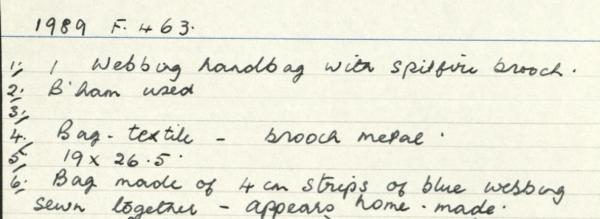 1989 F. 463.
1. 1 Webbing handbag with spitfire brooch.
2. B'ham used
3.
4. Bag - textile - brooch metal.
5. 19 x 26.5.
6. Bag made of 4 cm strips of blue webbing
sewn together - appears home-made.